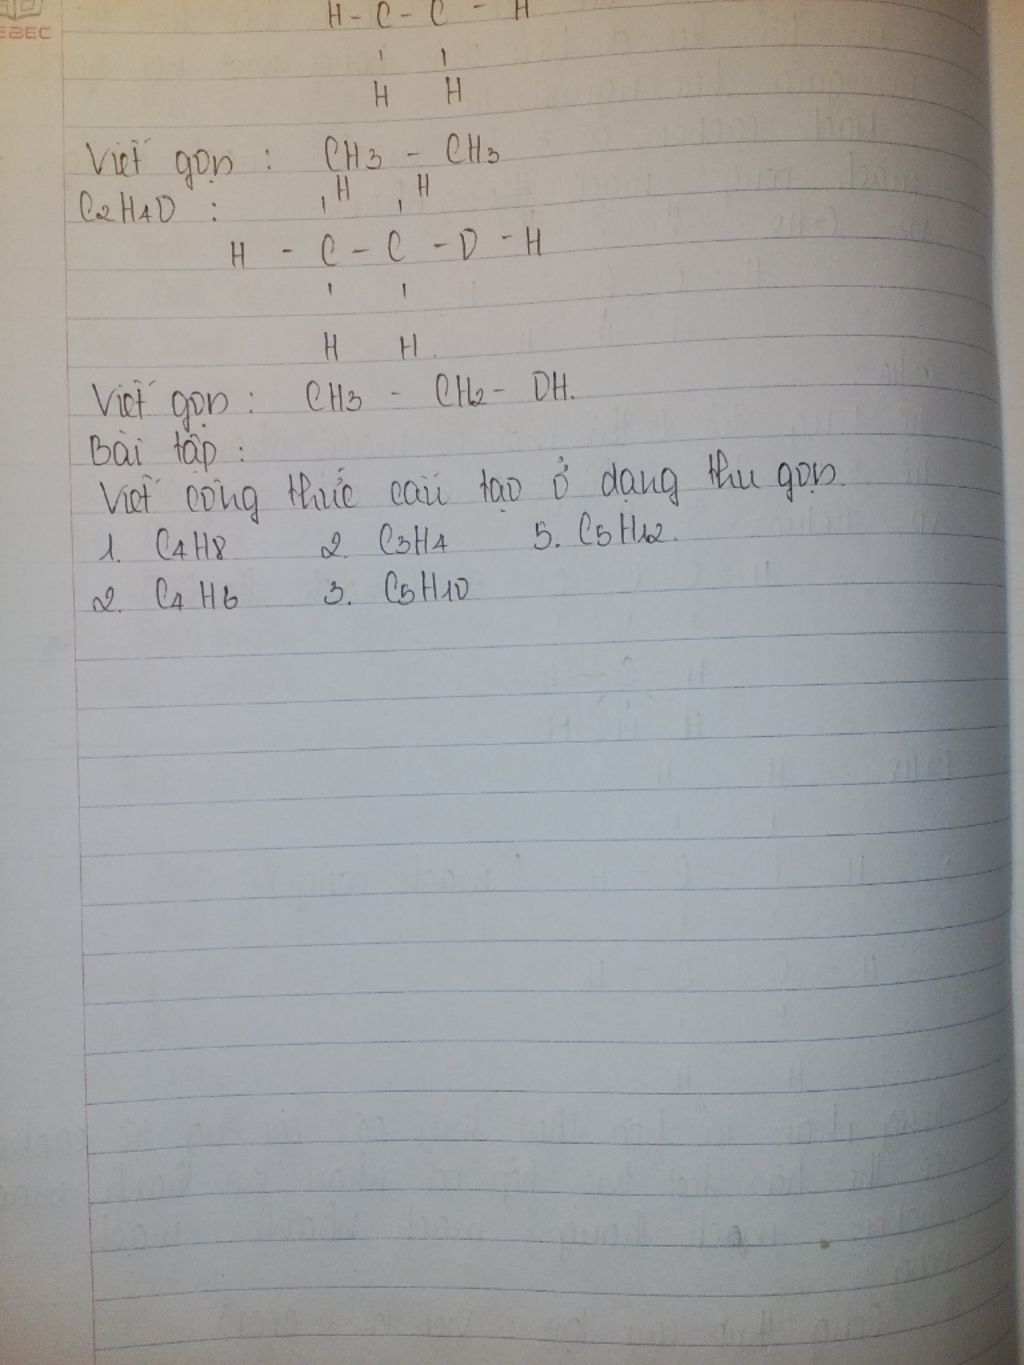 EBEC
H - C - C - H
H H
Viết gọn : CH3 - CH3
H H
C2H4O :
H - C - C - O - H
H H
Viết gọn : CH3 - CH2 - OH.
Bài tập :
Viết công thức cấu tạo ở dạng thu gọn.
1. C4H8 2. C3H4 5. C5H12.
2. C4H6 3. C5H10